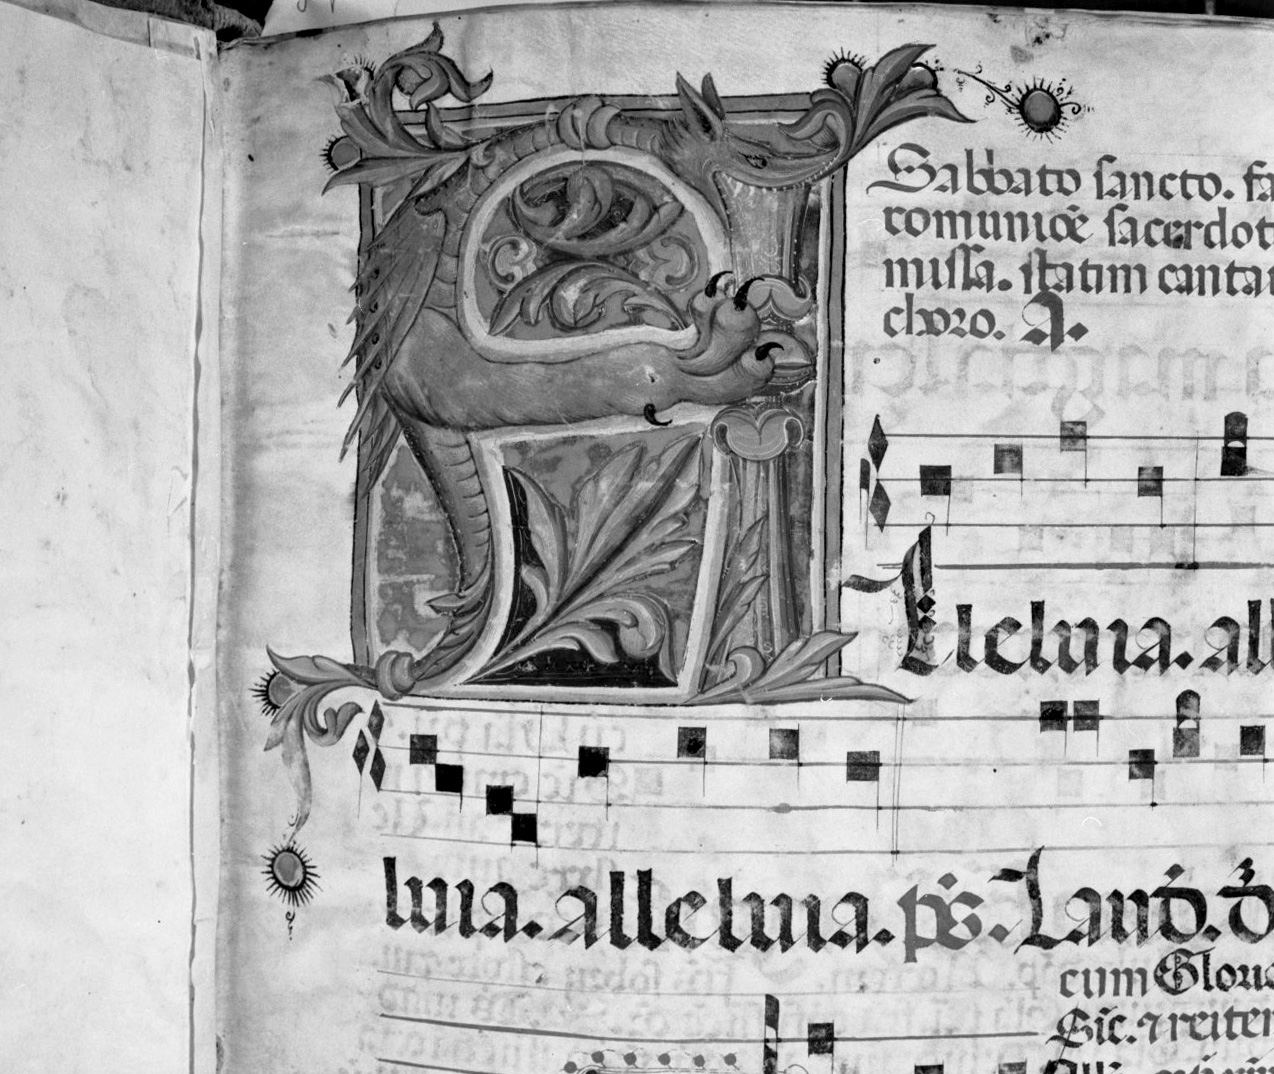 Sabbato sancto. fa
comunioe sacerdot
missa. statim canta
choro. A.
Alleluia. all
luia. alleluia. ps. Laud. d
cum Glori
Sic. reiter